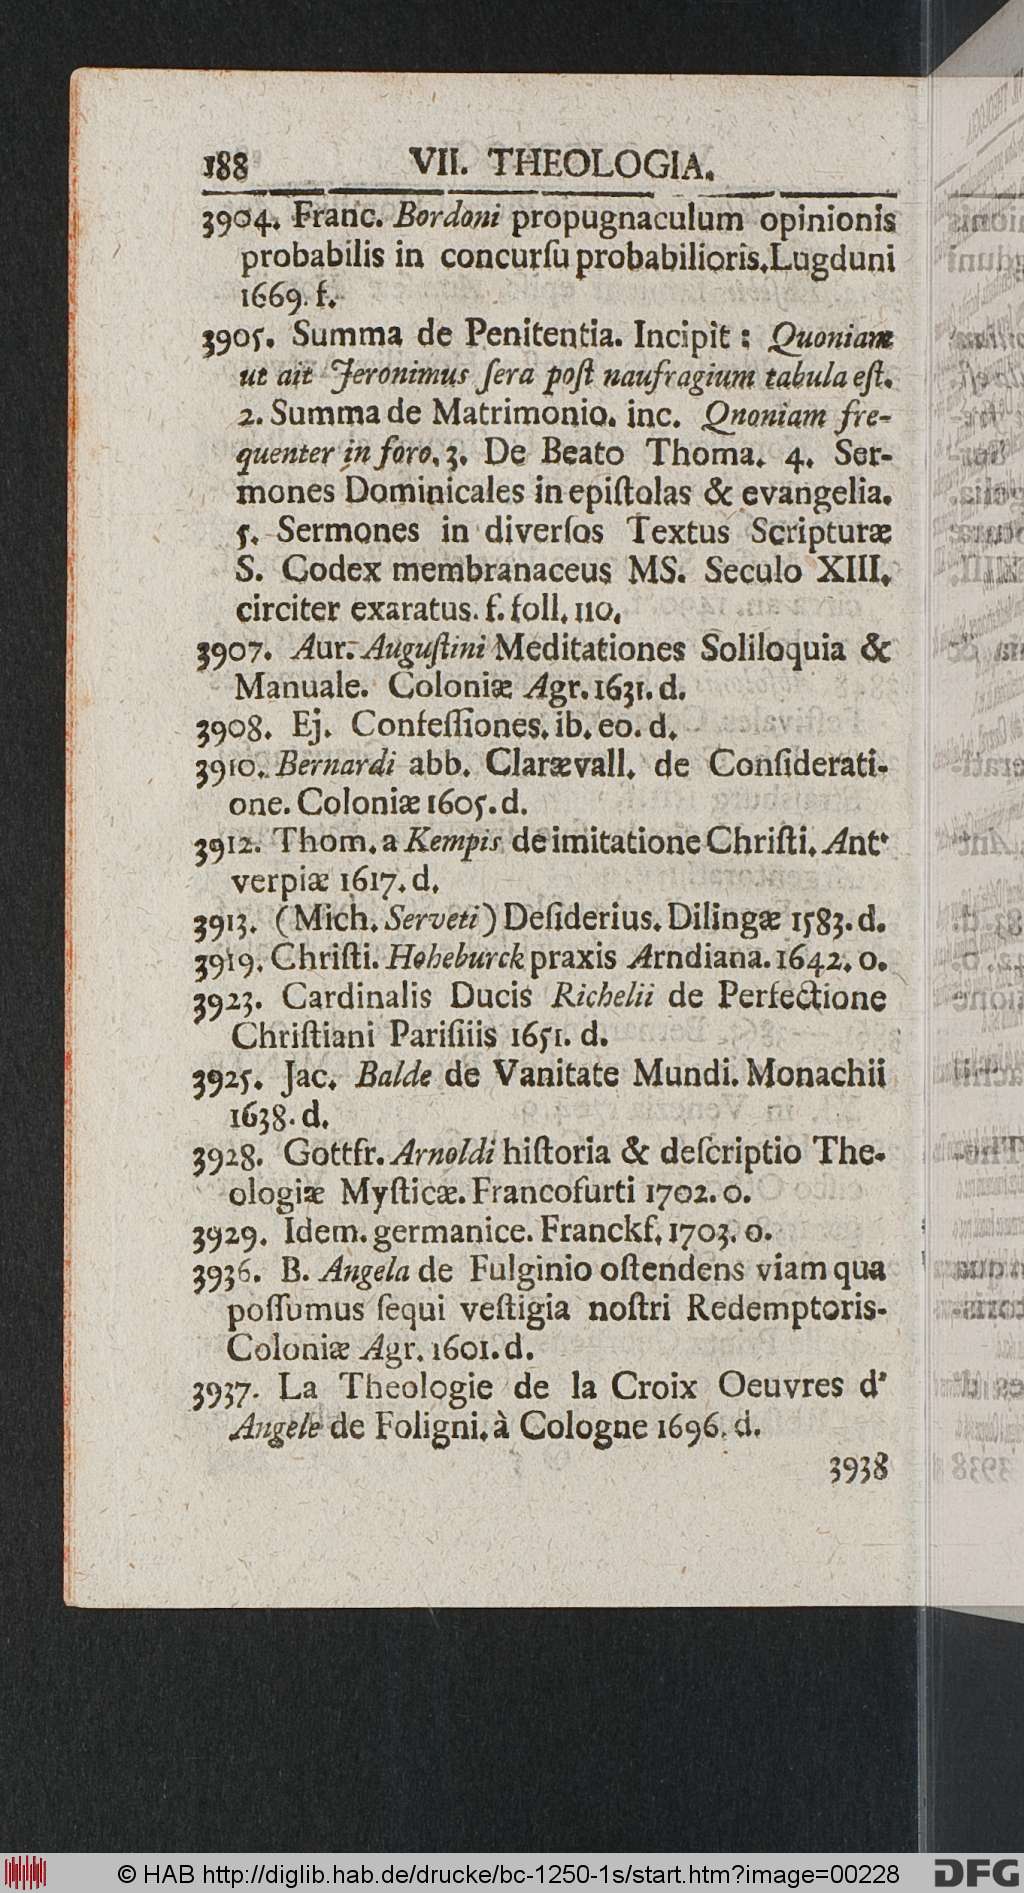 188 VII. THEOLOGIA.
3904. Franc. Bordoni propugnaculum opinionis
probabilis in concurſu probabilioris. Lugduni
1669. f.
3905. Summa de Penitentia. Incipit: Quoniam
ut ait Jeronimus ſera poſt naufragium tabula eſt.
2. Summa de Matrimonio. inc. Qnoniam fre-
quenter in foro. 3. De Beato Thoma. 4. Ser-
mones Dominicales in epiſtolas & evangelia.
5. Sermones in diverſos Textus Scripturæ
S. Codex membranaceus MS. Seculo XIII.
circiter exaratus. f. foll. 110.
3907. Aur. Auguſtini Meditationes Soliloquia &
Manuale. Coloniæ Agr. 1631. d.
3908. Ej. Confeſſiones. ib. eo. d.
3910. Bernardi abb. Claræ vall. de Conſiderati-
one. Coloniæ 1605. d.
3912. Thom. a Kempis de imitatione Chriſti. Ant-
verpiæ 1617. d.
3913. (Mich. Serveti) Deſiderius. Dilingæ 1583. d.
3919. Chriſti. Hoheburck praxis Arndiana. 1642. o.
3923. Cardinalis Ducis Richelii de Perfectione
Chriſtiani Pariſiiis 1651. d.
3925. Jac. Balde de Vanitate Mundi. Monachii
1638. d.
3928. Gottfr. Arnoldi hiſtoria & deſcriptio The-
ologiæ Myſticæ. Francofurti 1702. o.
3929. Idem. germanice. Franckf. 1703. o.
3936. B. Angela de Fulginio oſtendens viam qua
poſſumus ſequi veſtigia noſtri Redemptoris-
Coloniæ Agr. 1601. d.
3937. La Theologie de la Croix Oeuvres d'
Angele de Foligni. à Cologne 1696. d.
3938
© HAB http://diglib.hab.de/drucke/bc-1250-1s/start.htm?image=00228
DFG